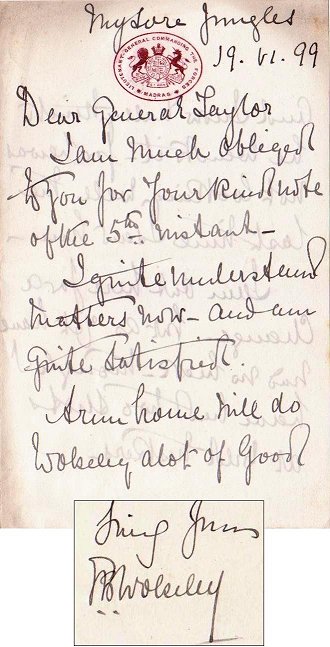 Mysore Jungles
LIEUTENANT-GENERAL COMMANDING THE FORCES
MADRAS
19. VI. 99
Dear General Taylor
I am much obliged
to you for your kind note
of the 5th instant—
I quite understand
matters now — and am
quite satisfied.
A run home will do
Wolseley a lot of Good
Wolseley